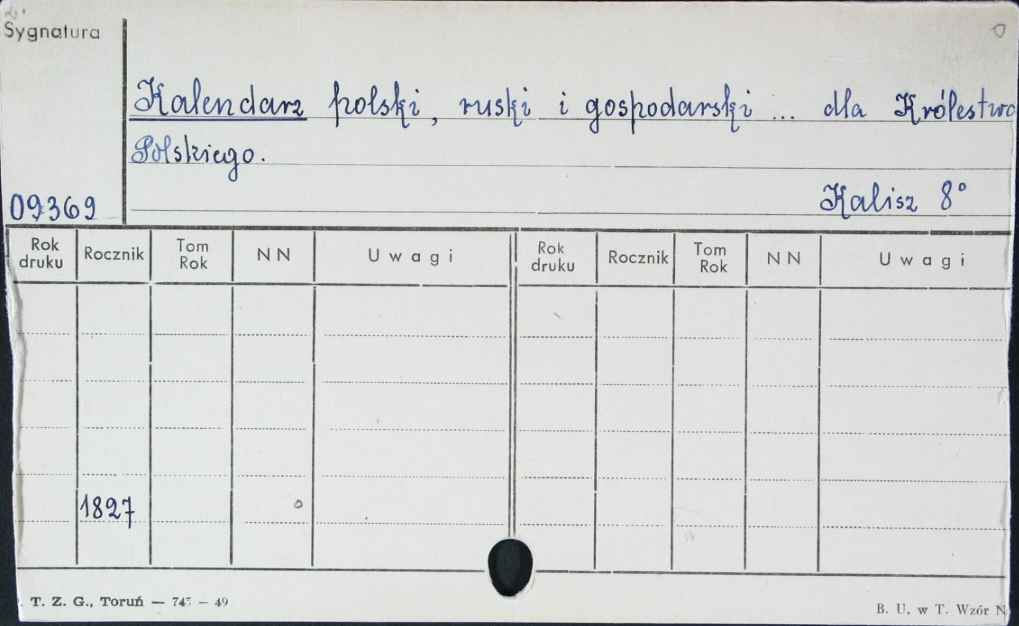 Sygnatura
Kalendarz polski, ruski i gospodarski ... dla Królestwa
Polskiego.
09369
Kalisz 8°
Rok druku Rocznik Tom Rok NN Uwagi Rok druku Rocznik Tom Rok NN Uwagi
1827
T. Z. G., Toruń — 745 — 49
B. U. w T. Wzór N